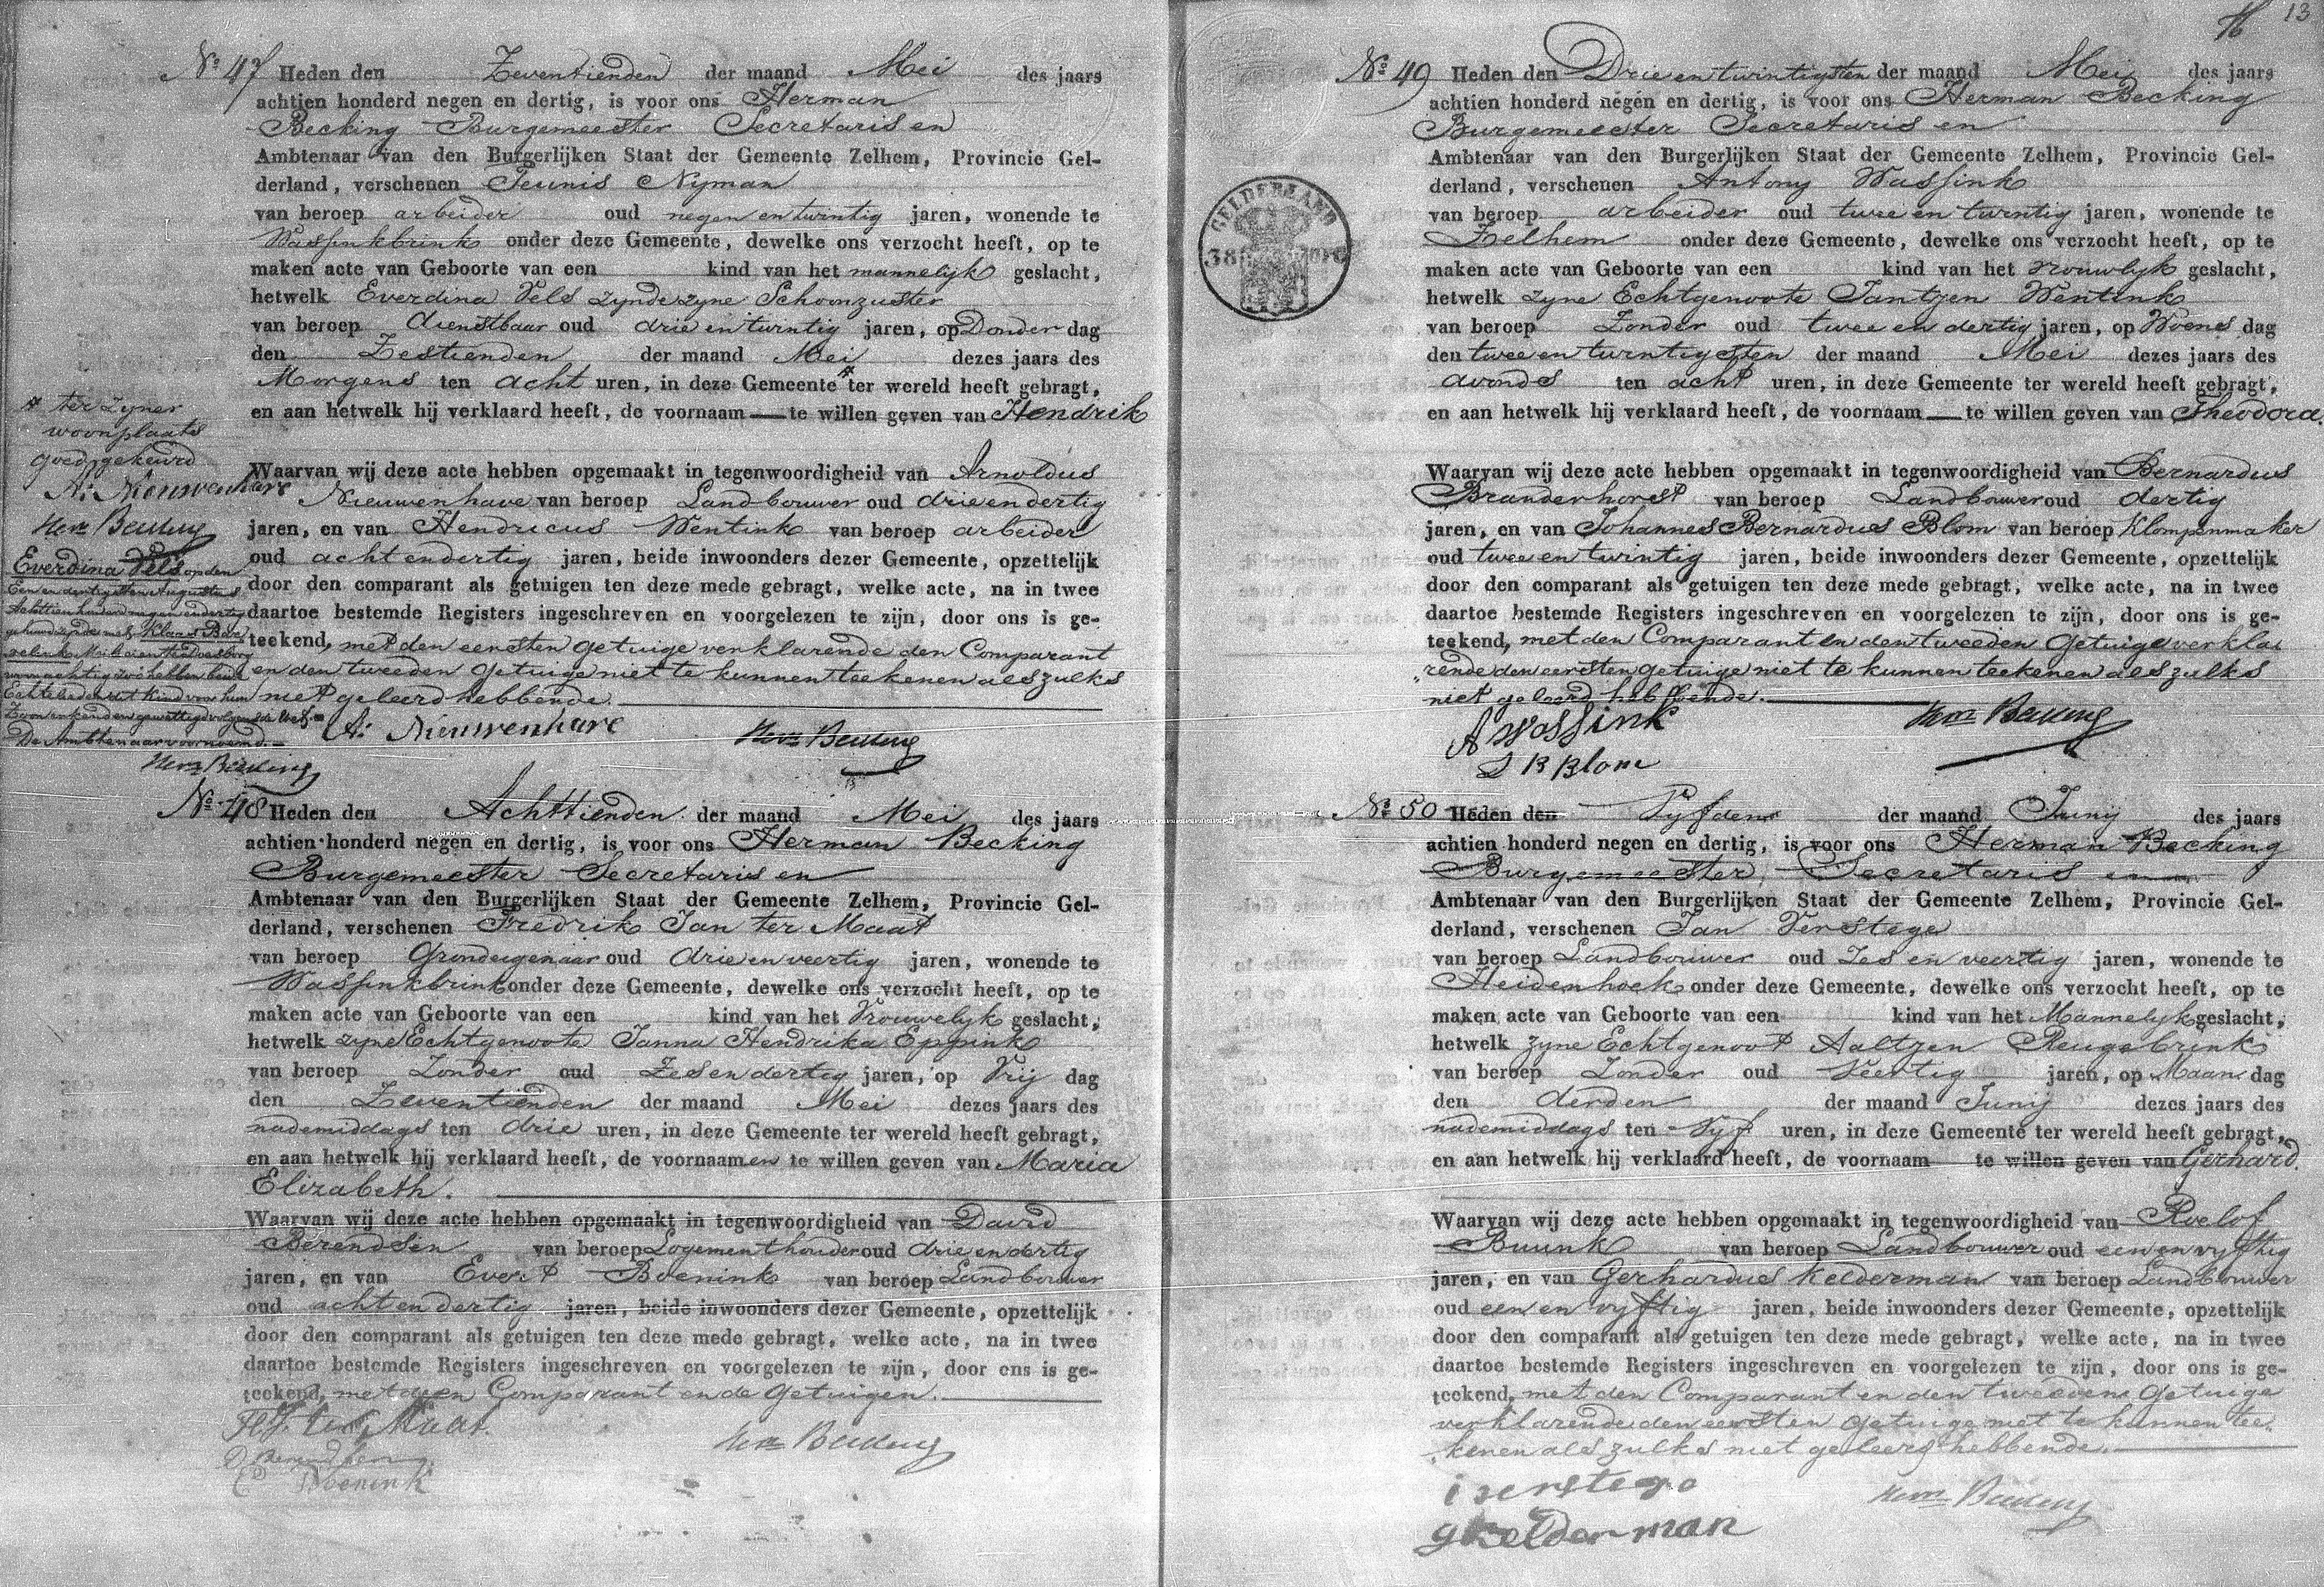 No 47 Heden den Zeventienden der maand Mei des jaars
achtien honderd negen en dertig, is voor ons Herman
Becking Burgemeester Secretaris en
Ambtenaar van den Burgerlijken Staat der Gemeente Zelhem, Provincie Gel-
derland, verschenen Teunis Nyman
van beroep arbeider oud negen en twintig jaren, wonende te
Wassinkbrink onder deze Gemeente, dewelke ons verzocht heeft, op te
maken acte van Geboorte van een kind van het mannelyk geslacht,
hetwelk Everdina Vels zynde zyne Schoonzuster
van beroep dienstbaar oud drie en twintig jaren, op Donder dag
den Zestienden der maand Mei dezes jaars des
Morgens ten acht uren, in deze Gemeente ter wereld heeft gebragt,
en aan hetwelk hij verklaard heeft, de voornaam te willen geven van Hendrik
Waarvan wij deze acte hebben opgemaakt in tegenwoordigheid van Arnoldus
Nieuwenhave van beroep Landbouwer oud drie en dertig
jaren, en van Hendricus Wentink van beroep arbeider
oud acht en dertig jaren, beide inwoonders dezer Gemeente, opzettelijk
door den comparant als getuigen ten deze mede gebragt, welke acte, na in twee
daartoe bestemde Registers ingeschreven en voorgelezen te zijn, door ons is ge-
teekend, met den eersten getuige verklarende den Comparant
en den tweeden getuige niet te kunnen teekenen als zulks
niet geleerd hebbende.
A: Nieuwenhave Herm Becking
ter zyner
woonplaats
goedgekeurd
A: Nieuwenhave
Herm Becking
Everdina Vels op den
Een en dertigsten Augustus
Achttienhonderd negen en dertig
gehuwd zynde met Klaas Bar
Echtelieden dit kind voor hun
Zoon erkend en gewettigd volgens de Wet.
De Ambtenaar voornoemd.
Herm Becking
No 48 Heden den Achttienden der maand Mei des jaars
achtien honderd negen en dertig, is voor ons Herman Becking
Burgemeester Secretaris en
Ambtenaar van den Burgerlijken Staat der Gemeente Zelhem, Provincie Gel-
derland, verschenen Fredrik Jan ter Maat
van beroep Grondeigenaar oud drie en veertig jaren, wonende te
Wassinkbrink onder deze Gemeente, dewelke ons verzocht heeft, op te
maken acte van Geboorte van een kind van het Vrouwelyk geslacht,
hetwelk zyne Echtgenoote Janna Hendrika Eppink
van beroep Zonder oud Zes en dertig jaren, op Vrij dag
den Zeventienden der maand Mei dezes jaars des
nademiddags ten drie uren, in deze Gemeente ter wereld heeft gebragt,
en aan hetwelk hij verklaard heeft, de voornaamen te willen geven van Maria
Elizabeth.
Waarvan wij deze acte hebben opgemaakt in tegenwoordigheid van David
Berendsen van beroep Logementhouder oud drie en dertig
jaren, en van Evert Boenink van beroep Landbouwer
oud acht en dertig jaren, beide inwoonders dezer Gemeente, opzettelijk
door den comparant als getuigen ten deze mede gebragt, welke acte, na in twee
daartoe bestemde Registers ingeschreven en voorgelezen te zijn, door ons is ge-
teekend, met den Comparant en de getuigen.
FJ. ter Maat.
D Berendsen Herm Becking
E Boenink
13
No 49 Heden den Drie en twintigsten der maand Mei des jaars
achtien honderd negen en dertig, is voor ons Herman Becking
Burgemeester Secretaris en
Ambtenaar van den Burgerlijken Staat der Gemeente Zelhem, Provincie Gel-
derland, verschenen Antony Wassink
van beroep arbeider oud twee en twintig jaren, wonende te
Zelhem onder deze Gemeente, dewelke ons verzocht heeft, op te
maken acte van Geboorte van een kind van het vrouwlyk geslacht,
hetwelk zyne Echtgenoote Jantzen Wentink
van beroep Zonder oud twee en dertig jaren, op Woens dag
den twee en twintigsten der maand Mei dezes jaars des
avonds ten acht uren, in deze Gemeente ter wereld heeft gebragt,
en aan hetwelk hij verklaard heeft, de voornaam te willen geven van Theodora.
Waarvan wij deze acte hebben opgemaakt in tegenwoordigheid van Bernardus
Branderhorst van beroep Landbouwer oud dertig
jaren, en van Johannes Bernardus Blom van beroep Klompenmaker
oud twee en twintig jaren, beide inwoonders dezer Gemeente, opzettelijk
door den comparant als getuigen ten deze mede gebragt, welke acte, na in twee
daartoe bestemde Registers ingeschreven en voorgelezen te zijn, door ons is ge-
teekend, met den Comparant en den tweeden getuige verkla
rende den eersten getuige niet te kunnen teekenen als zulks
niet geleerd hebbende.
A Wassink Herm Becking
J B Blom
GELDERLAND
No 50 Heden den Vyfden der maand Juny des jaars
achtien honderd negen en dertig, is voor ons Herman Becking
Burgemeester Secretaris en
Ambtenaar van den Burgerlijken Staat der Gemeente Zelhem, Provincie Gel-
derland, verschenen Jan Verstege
van beroep Landbouwer oud Zes en veertig jaren, wonende te
Heidenhoek onder deze Gemeente, dewelke ons verzocht heeft, op te
maken acte van Geboorte van een kind van het Mannelyk geslacht,
hetwelk zyne Echtgenoot Aaltzen Reugebrink
van beroep Zonder oud Veertig jaren, op Maan dag
den derden der maand Junij dezes jaars des
nademiddags ten Vyf uren, in deze Gemeente ter wereld heeft gebragt,
en aan hetwelk hij verklaard heeft, de voornaam te willen geven van Gerhard.
Waarvan wij deze acte hebben opgemaakt in tegenwoordigheid van Roelof
Buunk van beroep Landbouwer oud een en vyftig
jaren, en van Gerhardus Kelderman van beroep Landbouwer
oud een en vyftig jaren, beide inwoonders dezer Gemeente, opzettelijk
door den comparant als getuigen ten deze mede gebragt, welke acte, na in twee
daartoe bestemde Registers ingeschreven en voorgelezen te zijn, door ons is ge-
teekend, met den Comparant en den tweeden getuige
verklarende den eersten getuige niet te kunnen tee-
kenen als zulks niet geleerd hebbende.
i verstege Herm Becking
g kelderman